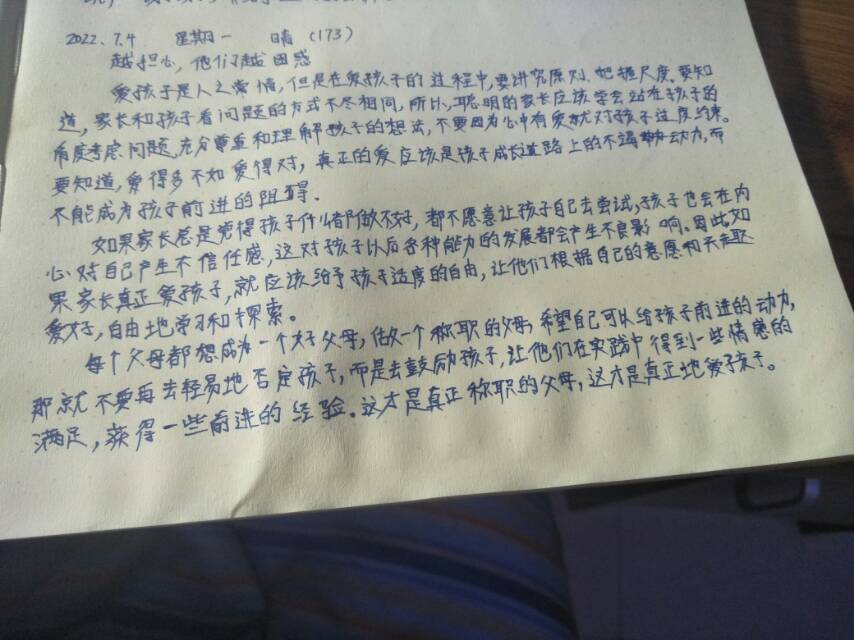 2022.7.4 星期一 晴 (173)
越担心,他们越困惑
爱孩子是人之常情,但是在爱孩子的过程中,要讲究原则,把握尺度。要知
道,家长和孩子看问题的方式不尽相同,所以,聪明的家长应该学会站在孩子的
角度考虑问题,充分尊重和理解孩子的想法,不要因为心中有爱就对孩子过度约束。
要知道,爱得多不如爱得对,真正的爱应该是孩子成长道路上的不竭动力,而
不能成为孩子前进的阻碍.
如果家长总是觉得孩子什么都做不好,都不愿意让孩子自己去尝试,孩子也会在内
心对自己产生不信任感,这对孩子以后各种能力的发展都会产生不良影响。因此,如
果家长真正爱孩子,就应该给予孩子适度的自由,让他们根据自己的意愿和兴趣
爱好,自由地学习和探索。
每个父母都想成为一个好父母,做一个称职的父母,希望自己可以给孩子前进的动力,
那就不要再去轻易地否定孩子,而是去鼓励孩子,让他们在实践中得到一些情感的
满足,获得一些前进的经验。这才是真正称职的父母,这才是真正地爱孩子。